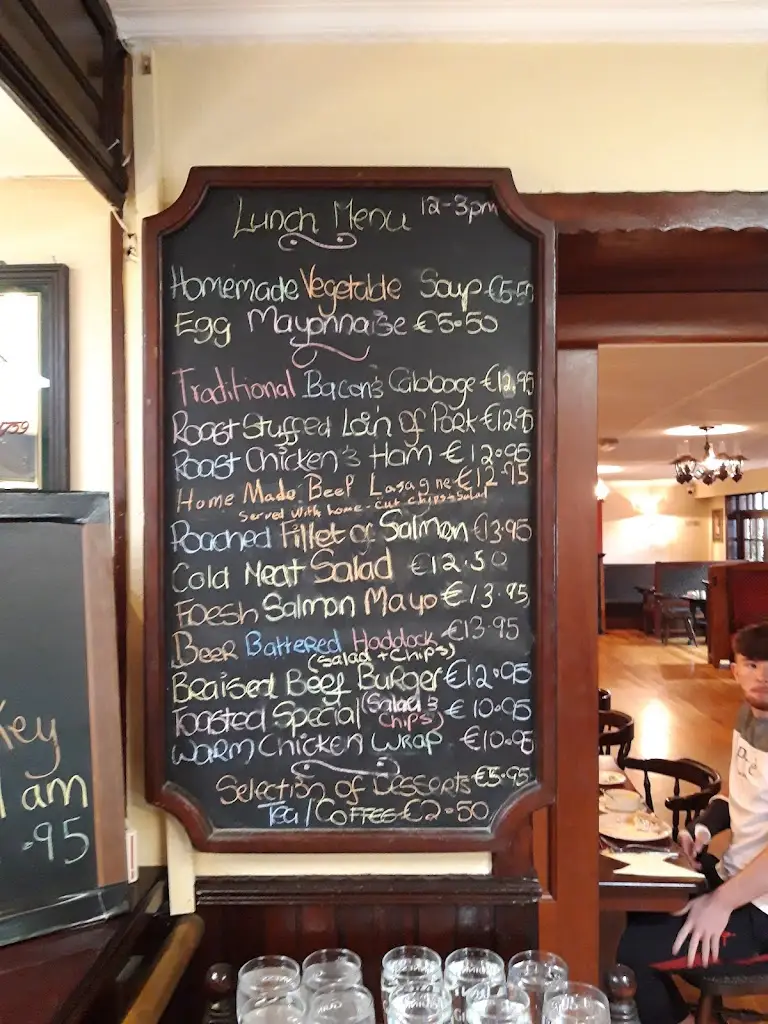 Lunch Menu 12-3pm
Homemade Vegetable Soup €5.50
Egg Mayonnaise €5.50
Traditional Bacon & Cabbage €12.95
Roast Stuffed Loin Of Pork €12.95
Roast Chicken & Ham €12.95
Home Made Beef Lasagne €12.95
Served with home-cut chips + Salad
Poached Fillet of Salmon €13.95
Cold Meat Salad €12.50
Fresh Salmon Mayo €13.95
Beer Battered Haddock €13.95
(Salad + Chips)
Braised Beef Burger €12.95
Toasted Special (Salad & Chips) €10.95
Warm Chicken Wrap €10.95
Selection of Desserts €5.95
Tea / Coffee €2.50
1759
key
am
.95